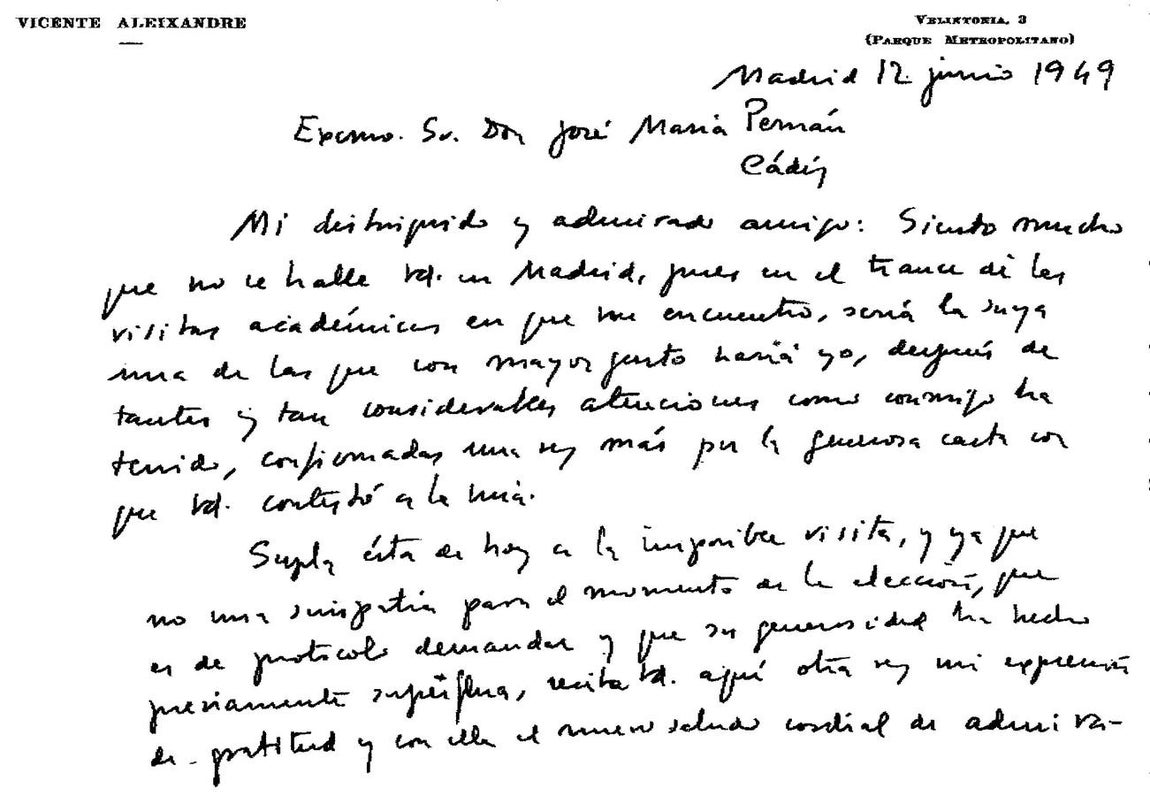 VICENTE ALEIXANDRE
VELINTONIA, 3
(PARQUE METROPOLITANO)
Madrid 12 junio 1949
Excmo. Sr. Don José María Pemán
Cádiz
Mi distinguido y admirado amigo: Siento mucho
que no se halle Vd. en Madrid, pues en el trance de las
visitas académicas en que me encuentro, sería la suya
una de las que con mayor gusto haría yo, después de
tantas y tan considerables atenciones como conmigo ha
tenido, confirmadas una vez más por la generosa carta con
que Vd. contestó a la mía.
Supla ésta de hoy a la imposible visita, y ya que
no una simpatía para el momento de la elección, que
es de protocolo demandar y que su generosidad ha hecho
previamente superflua, reciba Vd. aquí otra vez mi expresión
de gratitud y con ella el nuevo saludo cordial de admira-